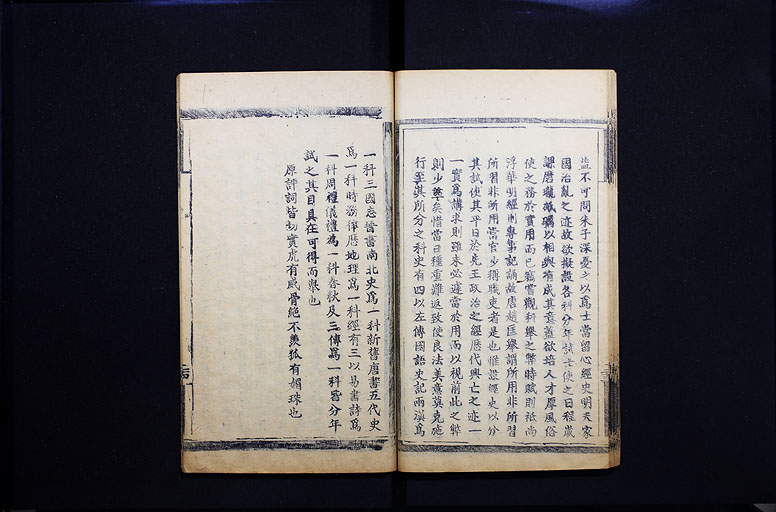 盖不可問朱子深憂之以爲士當留心經史明夫家
國治亂之迹故欲擬設各科分年試士使之日程歲
課磨礲砥礪以相與有成其意蓋欲培人才厚風俗
使之務於實用而已竊嘗觀科舉之弊時賦則祗尚
浮華明經則專事記誦故唐趙匡舉謂所用非所習
所習非所用當官少稱職吏者是也惟設經史以分
其試使其平日於先王政治之經歷代興亡之迹一
一實爲講求則雖未必遽當於用而以視前此之弊
則少矣惜當日種重難返致使良法美意莫克施
行至其所分之科史有四以左傳國語史記兩漢爲
一科三國志晉書南北史爲一科新舊唐書五代史
爲一科時務律歷地理爲一科經有三以易書詩爲
一科周禮儀禮爲一科春秋及三傳爲一科皆分年
試之其目具在可得而舉也
原評詞皆切實虎有威骨絕不羨狐有媚珠也